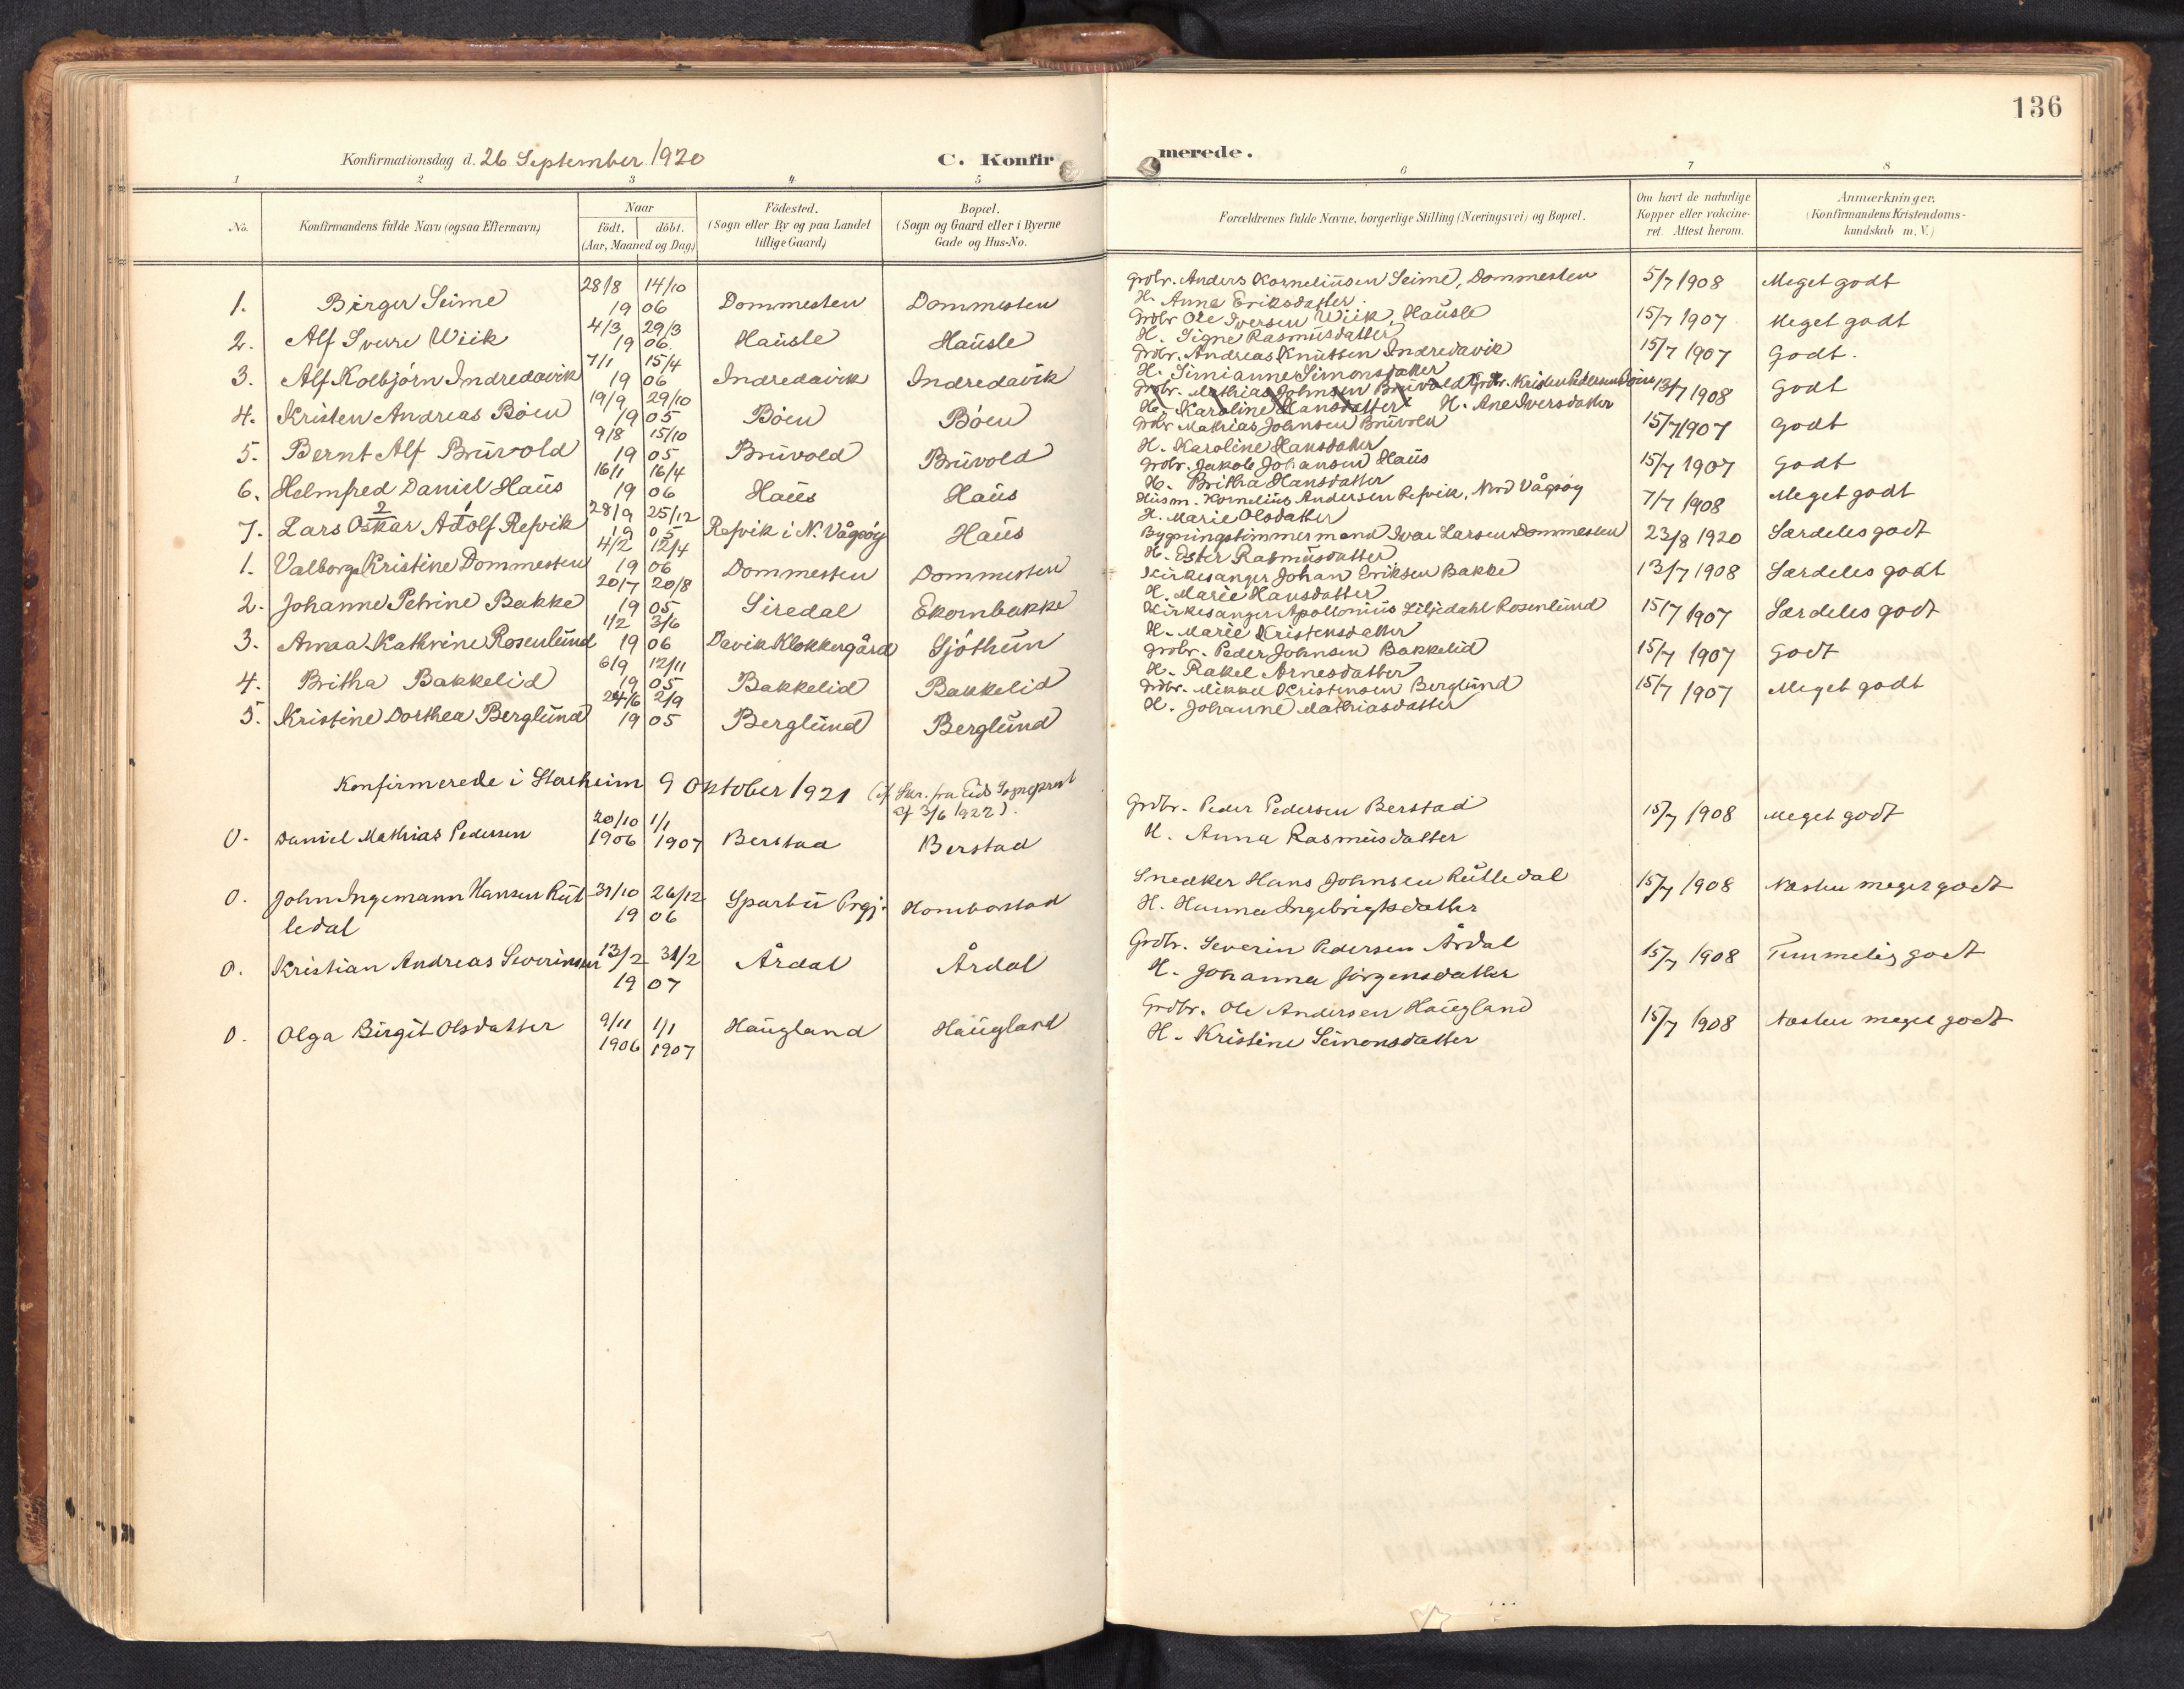 136
Konfirmationsdag d. 26 September 1920
C. Konfirmerede.
1 2 3 4 5 6 7 8
No. Konfirmandens fulde Navn (ogsaa Efternavn) Naar födt. döbt. (Aar, Maaned og Dag) Födested. (Sogn eller By og paa Landet tillige Gaard) Bopæl. (Sogn og Gaard eller i Byerne Gade og Hus-No. Forældrenes fulde Navne, borgerlige Stilling (Næringsvei) og Bopæl. Om havt de naturlige Kopper eller vakcineret. Attest herom. Anmærkninger. (Konfirmandens Kristendomskundskab m. V.)
1. Birger Seime 28/8 14/10 1906 Dommesten Dommesten Grdbr. Anders Korneliusen Seime, Dommesten H. Anna Eriksdatter. 5/7 1908 Meget godt
2. Alf Sverre Wiik 4/3 29/3 1906. Hausle Hausle Grdbr Ole Iversen Wiik, Hausle H. Signe Rasmusdatter 15/7 1907 Meget godt
3. Alf Kolbjörn Indredavik 7/1 15/4 1906 Indredavik Indredavik Grdbr. Andreas Knutsen Indredavik H. Simianne Simonsdatter 15/7 1907 Godt.
4. Kristen Andreas Böen 19/9 29/10 1905 Böen Böen Grdbr. Mathias Johnsen Bruvold H. Karoline Hansdatter Grdbr. Kristen Pedersen Böen H. Ane Iversdatter 13/7 1908 Godt
5. Bernt Alf Bruvold 9/8 15/10 1905 Bruvold Bruvold Grdbr Mathias Johnsen Bruvold H. Karoline Hansdatter 15/7 1907 Godt
6. Helmfred Daniel Haus 16/1 16/4 1906 Haus Haus Grdbr. Jakob Johansen Haus H. Britha Hansdatter 15/7 1907 Godt
7. Lars Oskar Adolf Refvik 2 1 28/9 25/12 1905 Refvik i N. Vågsöy Haus Husm. Kornelius Andersen Refvik, Nord Vågsöy H. Marie Olsdatter 7/7 1908 Meget godt
1. Valborg Kristine Dommesten 4/2 12/4 1906 Dommesten Dommesten Bygningstömmermand Ivar Larsen Dommesten H. Ester Rasmusdatter 23/8 1920 Særdeles godt
2. Johanne Petrine Bakke 20/7 20/8 1905 Siredal Ekornbakke Kirkesanger Johan Eriksen Bakke H. Marie Hansdatter 13/7 1908 Særdeles godt
3. Anna Kathrine Rosenlund 1/2 3/6 1906 Davik Klokkergård Sjöthun Kirkesanger Apollonius Liljedahl Rosenlund H. Marie Kristensdatter 15/7 1907 Særdeles godt
4. Britha Bakkelid 6/9 12/11 1905 Bakkelid Bakkelid Grdbr. Peder Johnsen Bakkelid H. Rakel Arnesdatter 15/7 1907 Godt
5. Kristine Dorthea Berglund 24/6 2/9 1905 Berglund Berglund Grdbr. Mikkel Kristensen Berglund H. Johanne Mathiasdatter 15/7 1907 Meget godt
Konfirmerede i Starheim 9 Oktober 1921 (if. Skr. fra Eids Sogneprest af 3/6 1922).
0. Daniel Mathias Pedersen 20/10 1906 1/1 1907 Berstad Berstad Grdbr. Peder Pedersen Berstad H. Anna Rasmusdatter 15/7 1908 Meget godt
0. John Ingemann Hansen Rutledal 31/10 26/12 1906 Sparbu Prgj. Hombostad Snedker Hans Johnsen Rutledal H. Hanna Ingebrigtsdatter 15/7 1908 Næsten meget godt
0. Kristian Andreas Severinsen 13/2 31/2 1907 Årdal Årdal Grdbr. Severin Pedersen Årdal H. Johanna Jörgensdatter 15/7 1908 Temmelig godt
0. Olga Birgit Olsdatter 9/11 1906 1/1 1907 Haugland Haugland Grdbr. Ole Andersen Haugland H. Kristine Simonsdatter 15/7 1908 Næsten meget godt